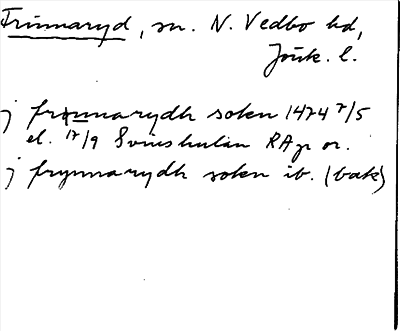 Frinnaryd, sn. N. Vedbo hd,
Jönk. l.
j frynnarydh soken 1474 7/5
el. 17/9 RAp or.
j frynnarydh soken ib. (bak)